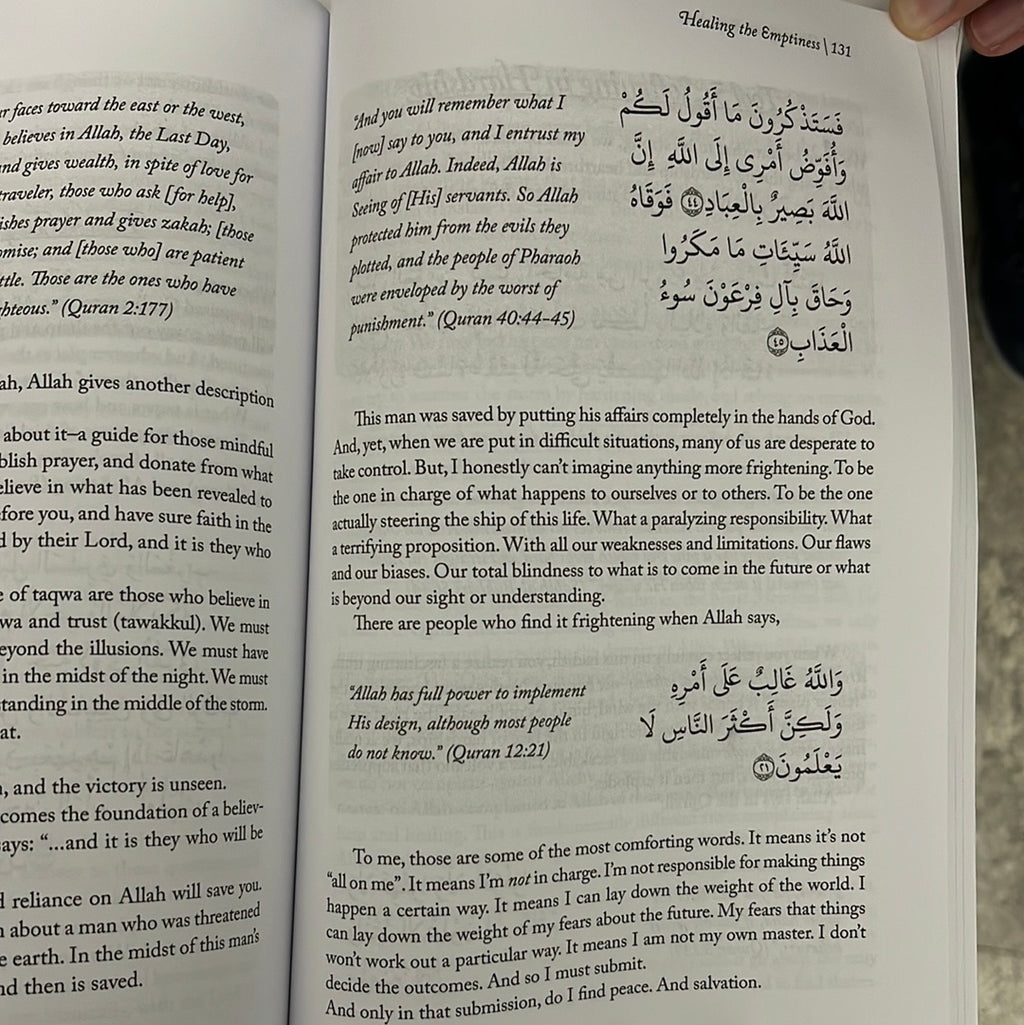 faces toward the east or the west,
believes in Allah, the Last Day,
gives wealth, in spite of love for
traveler, those who ask [for help],
prayer and gives zakah; [those
and [those who] are patient
Those are the ones who have
(Quran 2:177)
Allah gives another description
about it—a guide for those mindful
prayer, and donate from what
in what has been revealed to
you, and have sure faith in the
by their Lord, and it is they who
of taqwa are those who believe in
and trust (tawakkul). We must
the illusions. We must have
in the midst of the night. We must
in the middle of the storm.
and the victory is unseen.
the foundation of a believ-
“...and it is they who will be
reliance on Allah will save you.
about a man who was threatened
earth. In the midst of this man’s
then is saved.
Healing the Emptiness | 131
“And you will remember what I
[now] say to you, and I entrust my
affair to Allah. Indeed, Allah is
Seeing of [His] servants. So Allah
protected him from the evils they
plotted, and the people of Pharaoh
were enveloped by the worst of
punishment.” (Quran 40:44–45)
فَسَتَذْكُرُونَ مَا أَقُولُ لَكُمْ
وَأُفَوِّضُ أَمْرِى إِلَى اللَّهِ إِنَّ
اللَّهَ بَصِيرٌ بِالْعِبَادِ ﴿٤٤﴾ فَوَقَاهُ
اللَّهُ سَيِّئَاتِ مَا مَكَرُوا
وَحَاقَ بِآلِ فِرْعَوْنَ سُوءُ
الْعَذَابِ ﴿٤٥﴾
This man was saved by putting his affairs completely in the hands of God.
And, yet, when we are put in difficult situations, many of us are desperate to
take control. But, I honestly can’t imagine anything more frightening. To be
the one in charge of what happens to ourselves or to others. To be the one
actually steering the ship of this life. What a paralyzing responsibility. What
a terrifying proposition. With all our weaknesses and limitations. Our flaws
and our biases. Our total blindness to what is to come in the future or what
is beyond our sight or understanding.
There are people who find it frightening when Allah says,
“Allah has full power to implement
His design, although most people
do not know.” (Quran 12:21)
وَاللَّهُ غَالِبٌ عَلَى أَمْرِهِ
وَلَكِنَّ أَكْثَرَ النَّاسِ لَا
يَعْلَمُونَ ﴿٢١﴾
To me, those are some of the most comforting words. It means it’s not
“all on me”. It means I’m not in charge. I’m not responsible for making things
happen a certain way. It means I can lay down the weight of the world. I
can lay down the weight of my fears about the future. My fears that things
won’t work out a particular way. It means I am not my own master. I don’t
decide the outcomes. And so I must submit.
And only in that submission, do I find peace. And salvation.